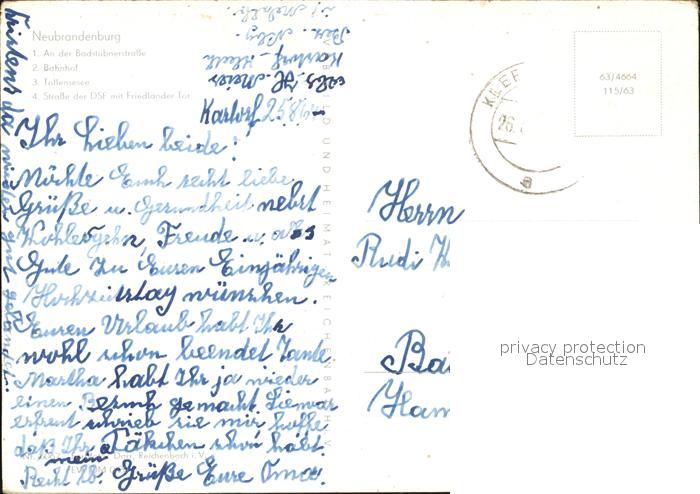 Neubrandenburg
1. An der Badstübnerstraße
2. Bahnhof
3. Tollensesee
4. Straße der DSF mit Friedländer Tor
Kartorf 25.8.64
Ihr Lieben beide!
Möchte Euch recht liebe
Grüße u. Gesundheit nebst
Wohlergehn, Freude u. alles
Gute zu Euren Einjährigen
Hochzeitstag wünschen.
Euren Urlaub habt Ihr
wohl schon beendet Tante
Martha habt Ihr ja wieder
einen Besuch gemacht. Sie war
erfreut schrieb sie mir hoffe
daß Ihr mein Päkchen schon habt.
Recht hb. Grüße Eure Oma.
wieder gut gelandet.
BILD UND HEIMAT REICHENBACH
Reichenbach i. V.
63/4664
115/63
26.
Herrn
Rudi
privacy protection
Datenschutz